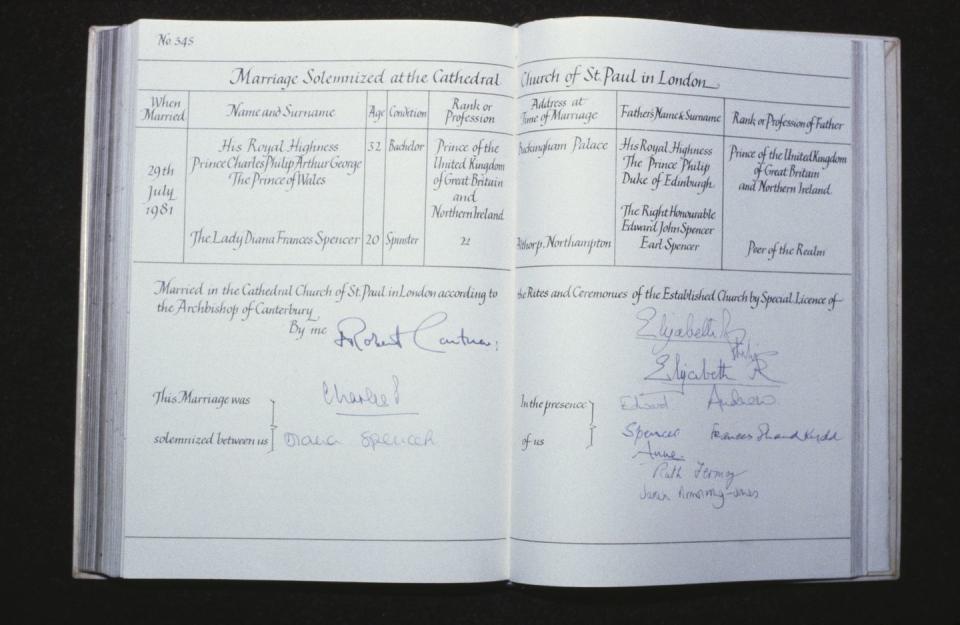 No. 345
Marriage Solemnized at the Cathedral Church of St. Paul in London
When Married
Name and Surname
Age
Condition
Rank or Profession
Address at Time of Marriage
Father's Name & Surname
Rank or Profession of Father
29th July 1981
His Royal Highness
Prince Charles Philip Arthur George
The Prince of Wales
32
Bachelor
Prince of the
United Kingdom
of Great Britain
and
Northern Ireland
Buckingham Palace
His Royal Highness
The Prince Philip
Duke of Edinburgh
Prince of the United Kingdom
of Great Britain
and Northern Ireland
The Lady Diana Frances Spencer
20
Spinster
Althorp, Northampton
The Right Honourable
Edward John Spencer
Earl Spencer
Peer of the Realm
Married in the Cathedral Church of St. Paul in London according to the Rites and Ceremonies of the Established Church by Special Licence of
the Archbishop of Canterbury
By me Robert Cantuar:
This Marriage was
solemnized between us
Charles P
Diana Spencer
In the presence
of us
Elizabeth R
Philip
Elizabeth R
Edward Andrew
Spencer Frances Shand Kydd
Anne
Ruth Fermoy
Armstrong-Jones